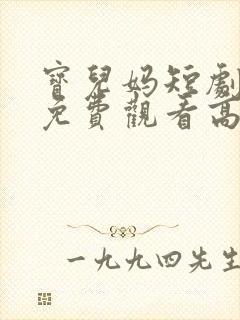 寶兒妈短劇
免費觀看高
一九九四先生